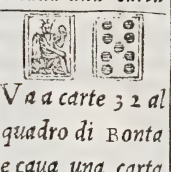 Va a carte 32 al
quadro di Bonta
e caua una carta